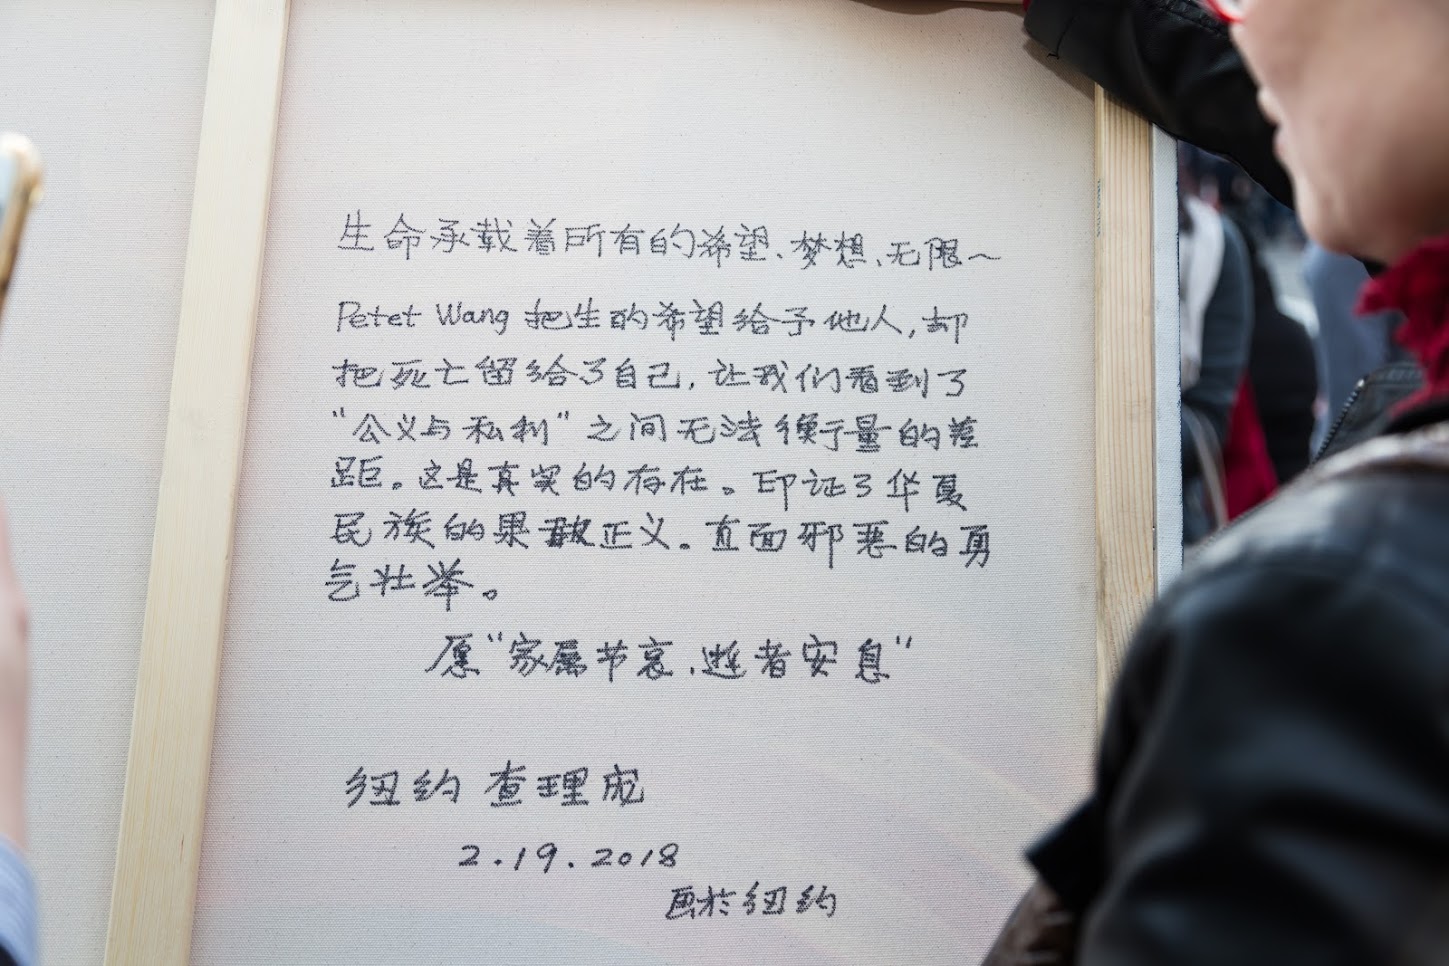 生命承载着所有的希望、梦想、无限～
Petet Wang 把生的希望给予他人,却
把死亡留给了自己,让我们看到了
“公义与私利”之间无法衡量的差
距。这是真实的存在。印证了华夏
民族的果敢正义。直面邪恶的勇
气壮举。
愿“家属节哀,逝者安息”
纽约 查理宠
2.19.2018
画於纽约